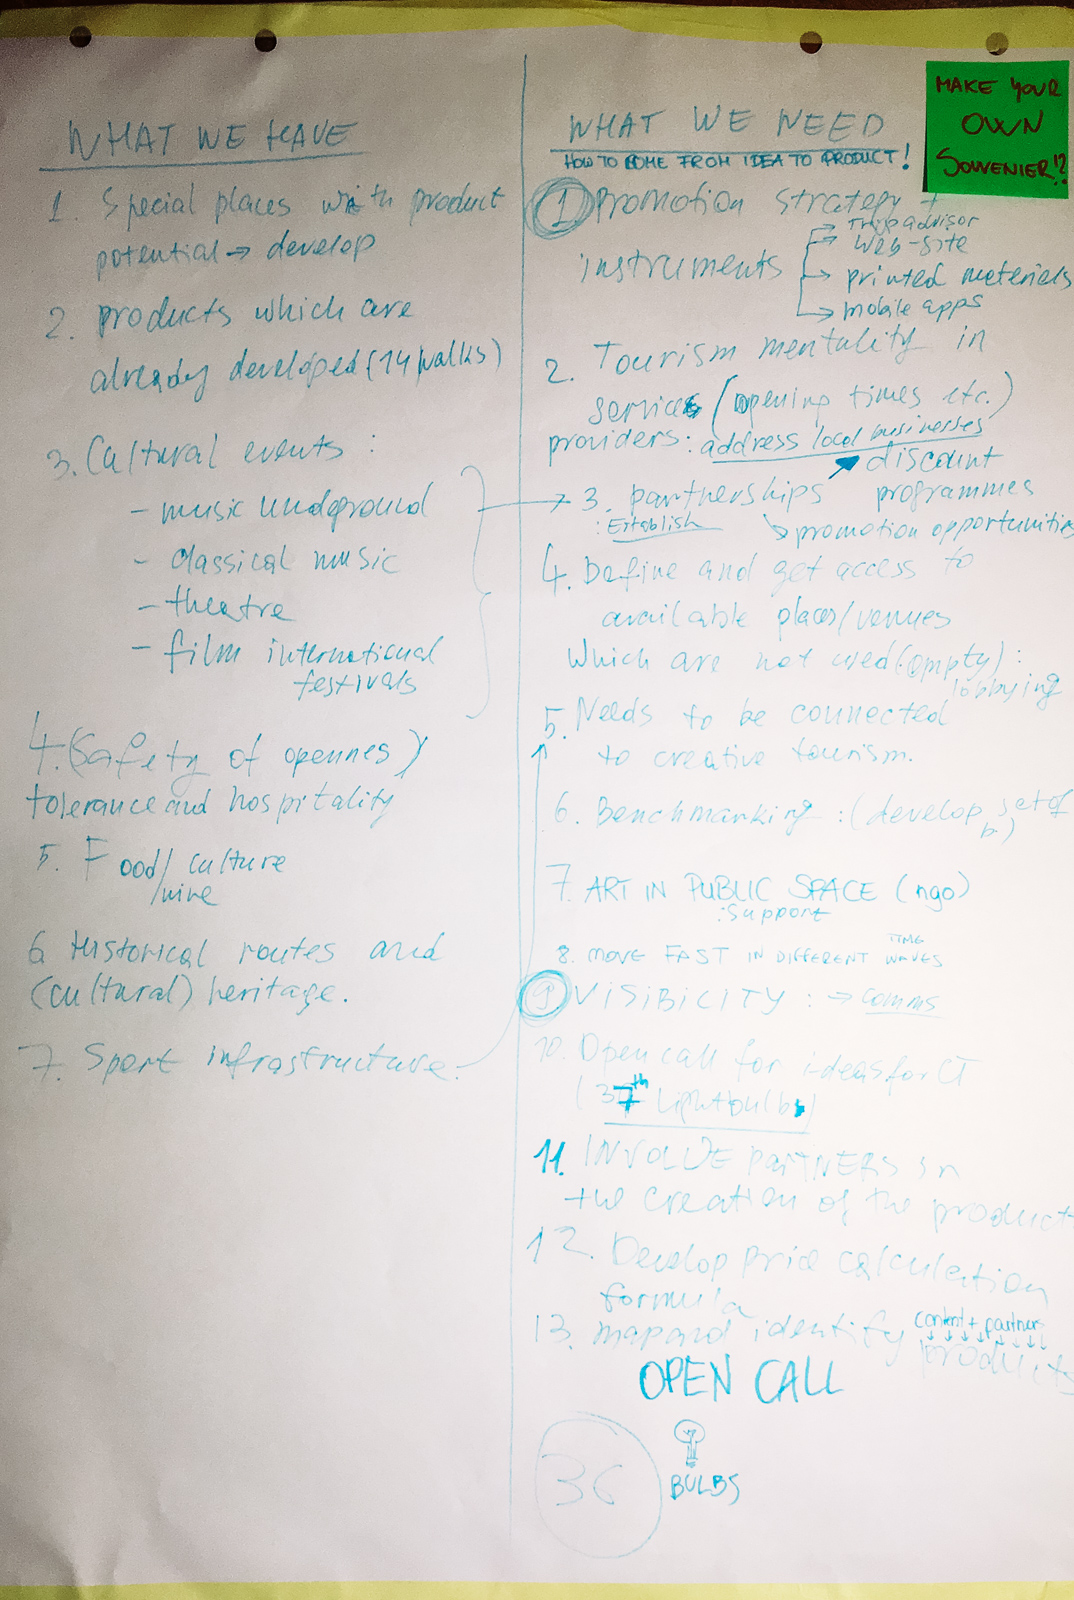 WHAT WE HAVE
1. Special places with product
potential → develop
2. products which are
already developed (14 walks)
3. Cultural events :
- music undground
- classical music
- theatre
- film international
festivals
4. (Safety of opennes)
tolerance and hospitality
5. Food/culture
/wine
6 Historical routes and
(cultural) heritage.
7. Sport infrastructure.
WHAT WE NEED
HOW TO COME FROM IDEA TO PRODUCT!
1 Promotion strategy +
instruments
→ Tripadvisor
→ Web-site
→ printed materials
→ mobile apps
2. Tourism mentality in
services (opening times etc.)
providers: address local businesses
3. partnerships
: Establish
discount
programmes
promotion opportunities
4. Define and get access to
available places/venues
which are not used (empty) :
lobbying
5. Needs to be connected
to creative tourism.
6. Benchmarking : (develop set of
b)
7. ART IN PUBLIC SPACE (ngo)
: Support
8. MOVE FAST IN DIFFERENT TIME WAVES
9. VISIBICITY : → comms
10. Open call for ideas for CT
(37th Lightbulb)
11. INVOLVE PARTNERS in
the creation of the product
12. Develop price calculation
formula
13. map and identify products
content + partners
OPEN CALL
36
BULBS
MAKE YOUR
OWN
SOUVENIER!?